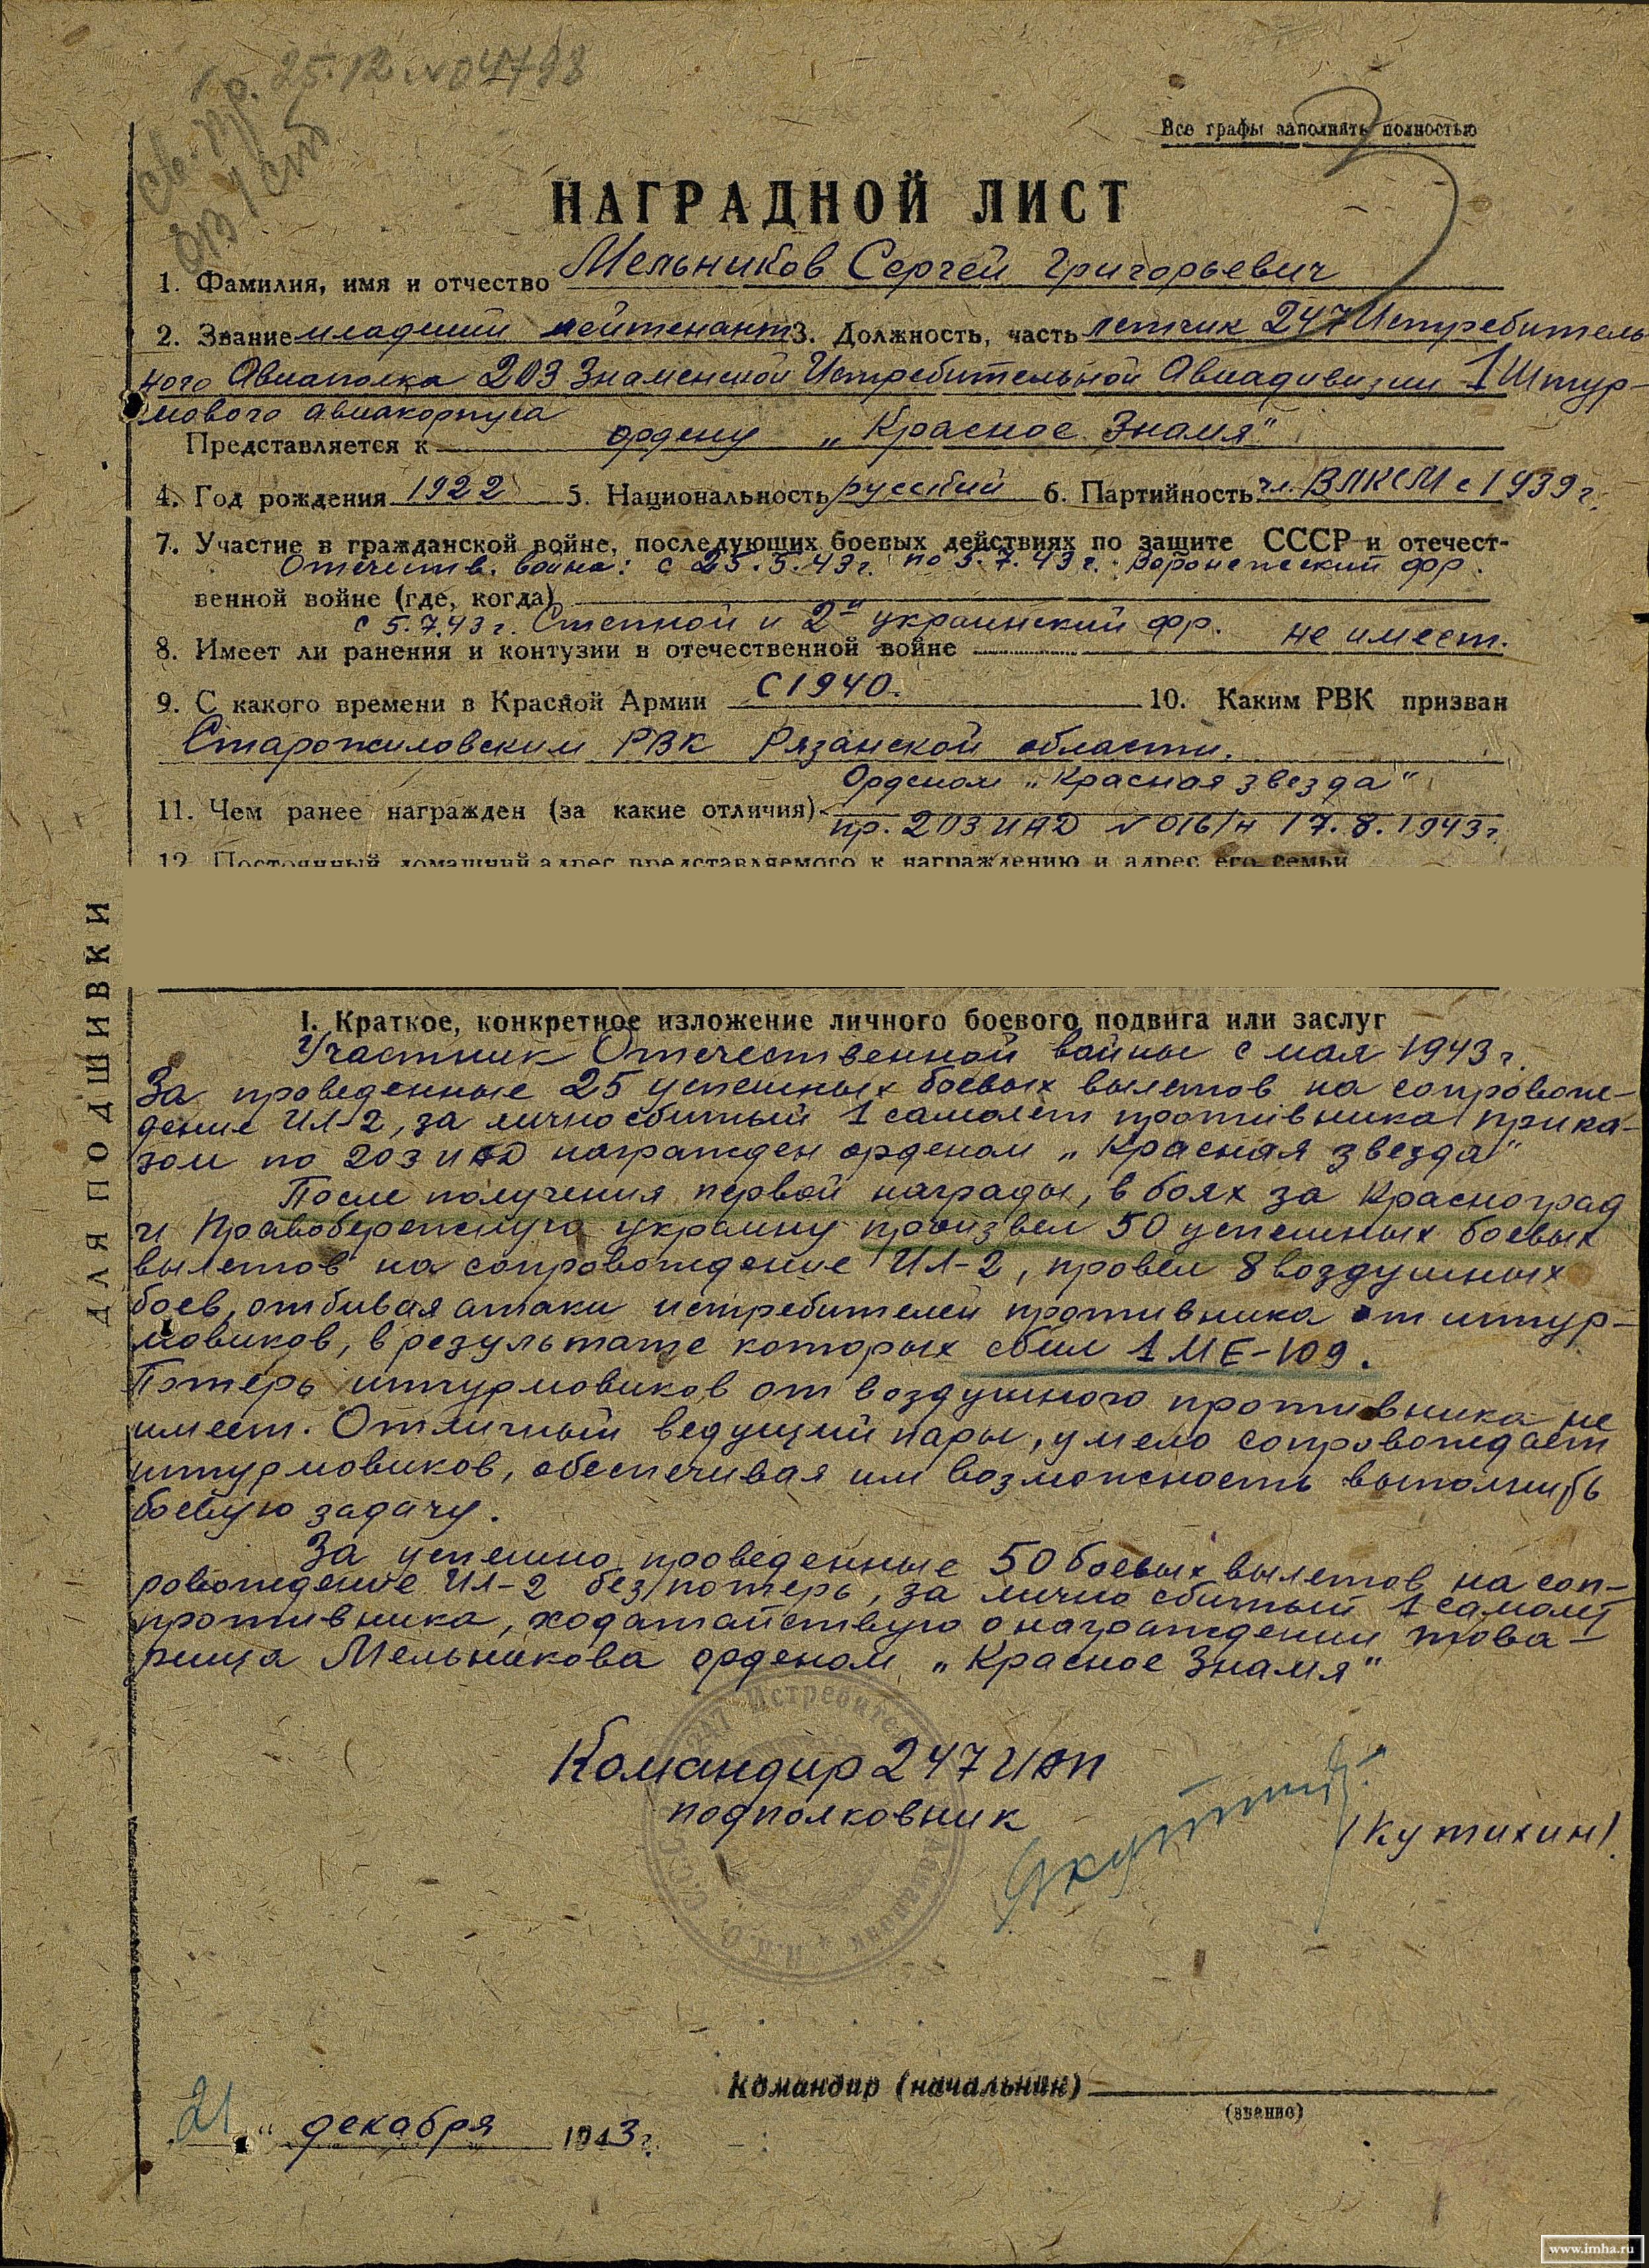 пр. 25.12 №04798
св.
ОВ 1 ст
Все графы заполнять полностью
НАГРАДНОЙ ЛИСТ
1. Фамилия, имя и отчество Мельников Сергей Григорьевич
2. Звание младший лейтенант 3. Должность, часть летчик 247 Истребитель
ного Авиаполка 203 Знаменской Истребительной Авиадивизии 1 Штур-
мового авиакорпуса
Представляется к ордену „Красное Знамя"
4. Год рождения 1922 5. Национальность русский 6. Партийность чл. ВЛКСМ с 1939 г.
7. Участие в гражданской войне, последующих боевых действиях по защите СССР и отечест-
Отечеств. война: с 25.5.43 г. по 5.7.43 г. Воронежский фр.
венной войне (где, когда)
с 5.7.43 г. Степной и 2й украинский фр.
8. Имеет ли ранения и контузии в отечественной войне не имеет.
9. С какого времени в Красной Армии С 1940. 10. Каким РВК призван
Старожиловским РВК Рязанской области.
Орденом „Красная звезда"
11. Чем ранее награжден (за какие отличия) пр. 203 ИАД №016/н 17.8.1943 г.
12. Постоянный домашний адрес представляемого к награждению и адрес его семьи
ДЛЯ ПОДШИВКИ
I. Краткое, конкретное изложение личного боевого подвига или заслуг
Участник Отечественной войны с мая 1943 г.
За проведенные 25 успешных боевых вылетов на сопровож-
дение ИЛ-2, за лично сбитый 1 самолет противника прика-
зом по 203 ИАД награжден орденом „Красная звезда"
После получения первой награды, в боях за Красноград
и Правобережную украину произвел 50 успешных боевых
вылетов на сопровождение ИЛ-2, провел 8 воздушных
боев, отбивая атаки истребителей противника от штур-
мовиков, в результате которых сбил 1 МЕ-109.
Потерь штурмовиков от воздушного противника не
имеет. Отличный ведущий пары, умело сопровождает
штурмовиков, обеспечивая им возможность выполнить
боевую задачу.
За успешно проведенные 50 боевых вылетов на соп-
ровождение ИЛ-2 без потерь, за лично сбитый 1 самолет
противника, ходатайствую о награждении това-
рища Мельникова орденом „Красное Знамя"
Командир 247 ИАП
подполковник
(Кутихин)
СССР Н.К.О. * 247 Истребительный Авиаполк
Командир (начальник)
(звание)
21 " декабря 1943 г.
www.imha.ru